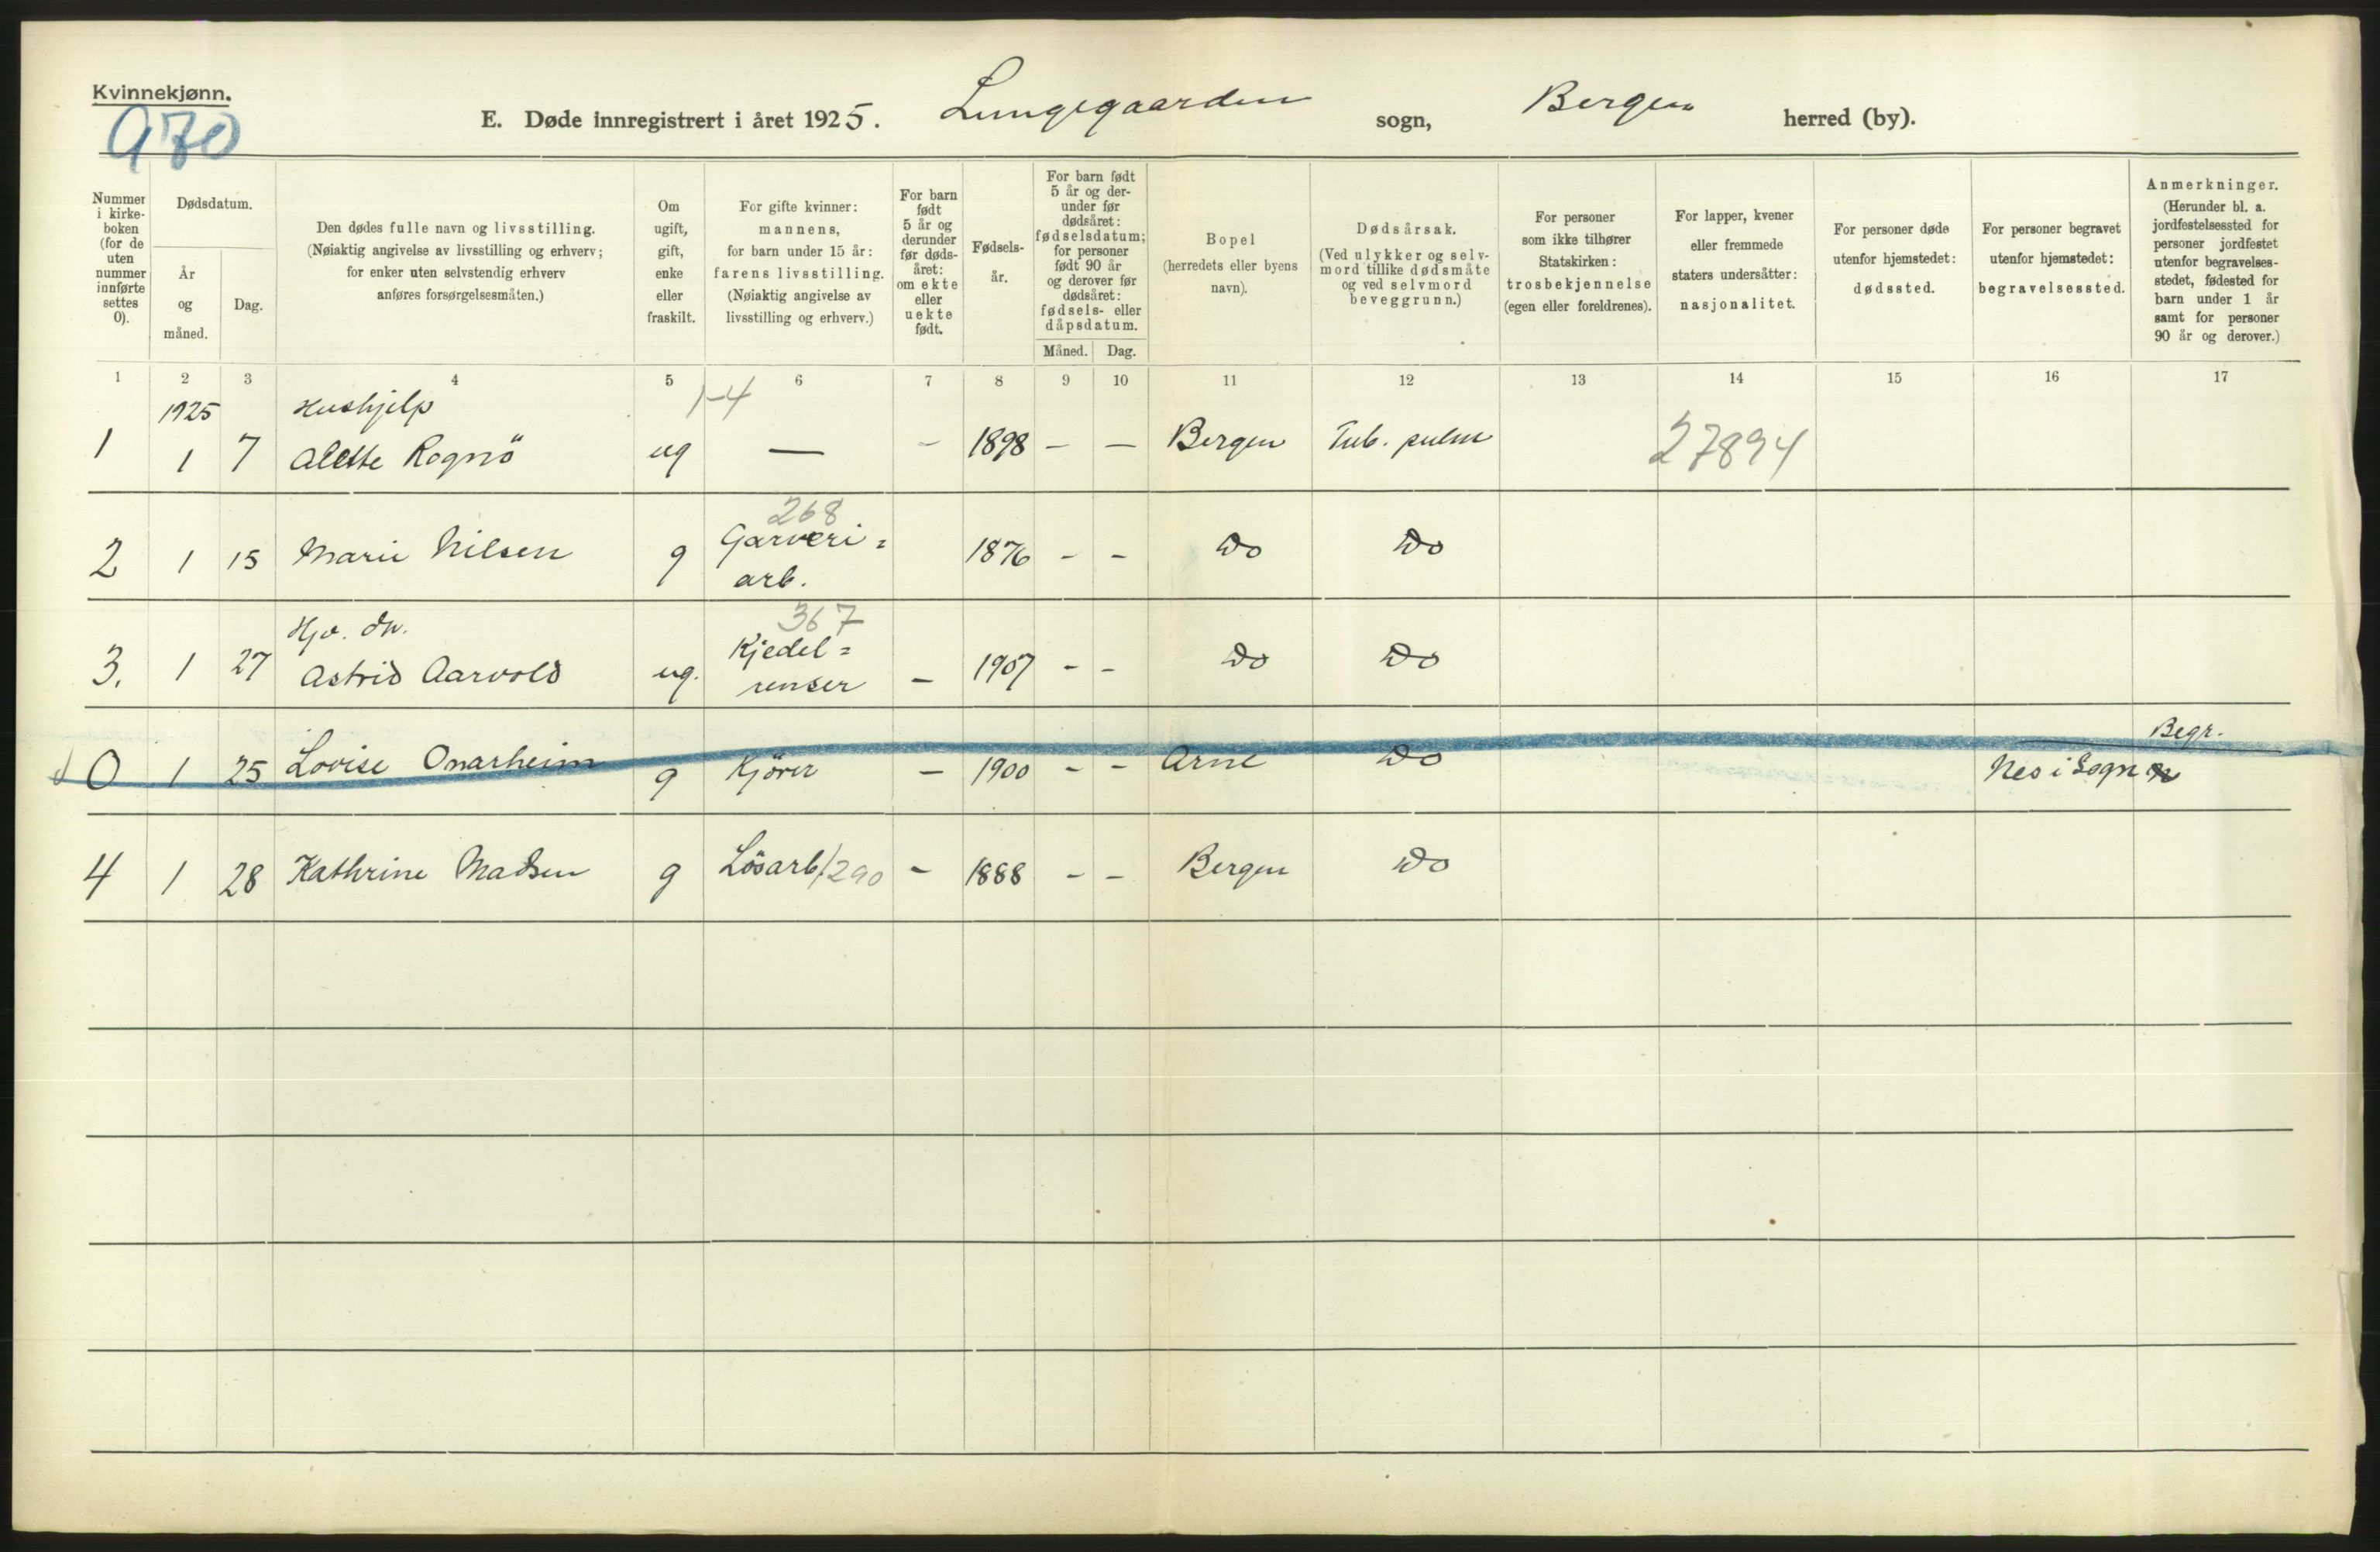 Kvinnekjønn.
970
E. Døde innregistrert i året 1925. Lungegaarden sogn, Bergen herred (by).
Nummer i kirke-boken (for de uten nummer innførte settes 0).
Dødsdatum.
År og måned.
Dag.
Den dødes fulle navn og livsstilling.
(Nøiaktig angivelse av livsstilling og erhverv;
for enker uten selvstendig erhverv
anføres forsørgelsesmåten.)
Om ugift, gift, enke eller fraskilt.
For gifte kvinner:
mannens,
for barn under 15 år:
farens livsstilling.
(Nøiaktig angivelse av
livsstilling og erhverv.)
For barn født 5 år og derunder før døds-året: om ekte eller uekte født.
Fødsels-år.
For barn født 5 år og der-under før dødsåret: fødselsdatum; for personer født 90 år og derover før dødsåret: fødsels- eller dåpsdatum.
Måned.
Dag.
Bopel
(herredets eller byens
navn).
Dødsårsak.
(Ved ulykker og selv-mord tillike dødsmåte og ved selvmord beveggrunn.)
For personer
som ikke tilhører
Statskirken:
trosbekjennelse
(egen eller foreldrenes).
For lapper, kvener
eller fremmede
staters undersåtter:
nasjonalitet.
For personer døde
utenfor hjemstedet:
dødssted.
For personer begravet
utenfor hjemstedet:
begravelsessted.
Anmerkninger.
(Herunder bl. a.
jordfestelsessted for
personer jordfestet
utenfor begravelses-
stedet, fødested for
barn under 1 år
samt for personer
90 år og derover.)
1 2 3 4 5 6 7 8 9 10 11 12 13 14 15 16 17
1925 Hushjelp 1-4
1 1 7 Alette Rognö ug — - 1898 — — Bergen Tub. pulm 27894
268
2 1 15 Marie Nilsen g Garveri= arb. 1876 - - Do Do
367
Hjv. dtr.
3. 1 27 Astrid Aarvold ug. Kjedel= renser — 1907 - - Do Do
Begr.
0 1 25 Lovise Onarheim g Kjörer — 1900 - - Arne Do Nes i Sogn
4 1 28 Kathrine Madsen g Lösarb/290 - 1888 - - Bergen Do